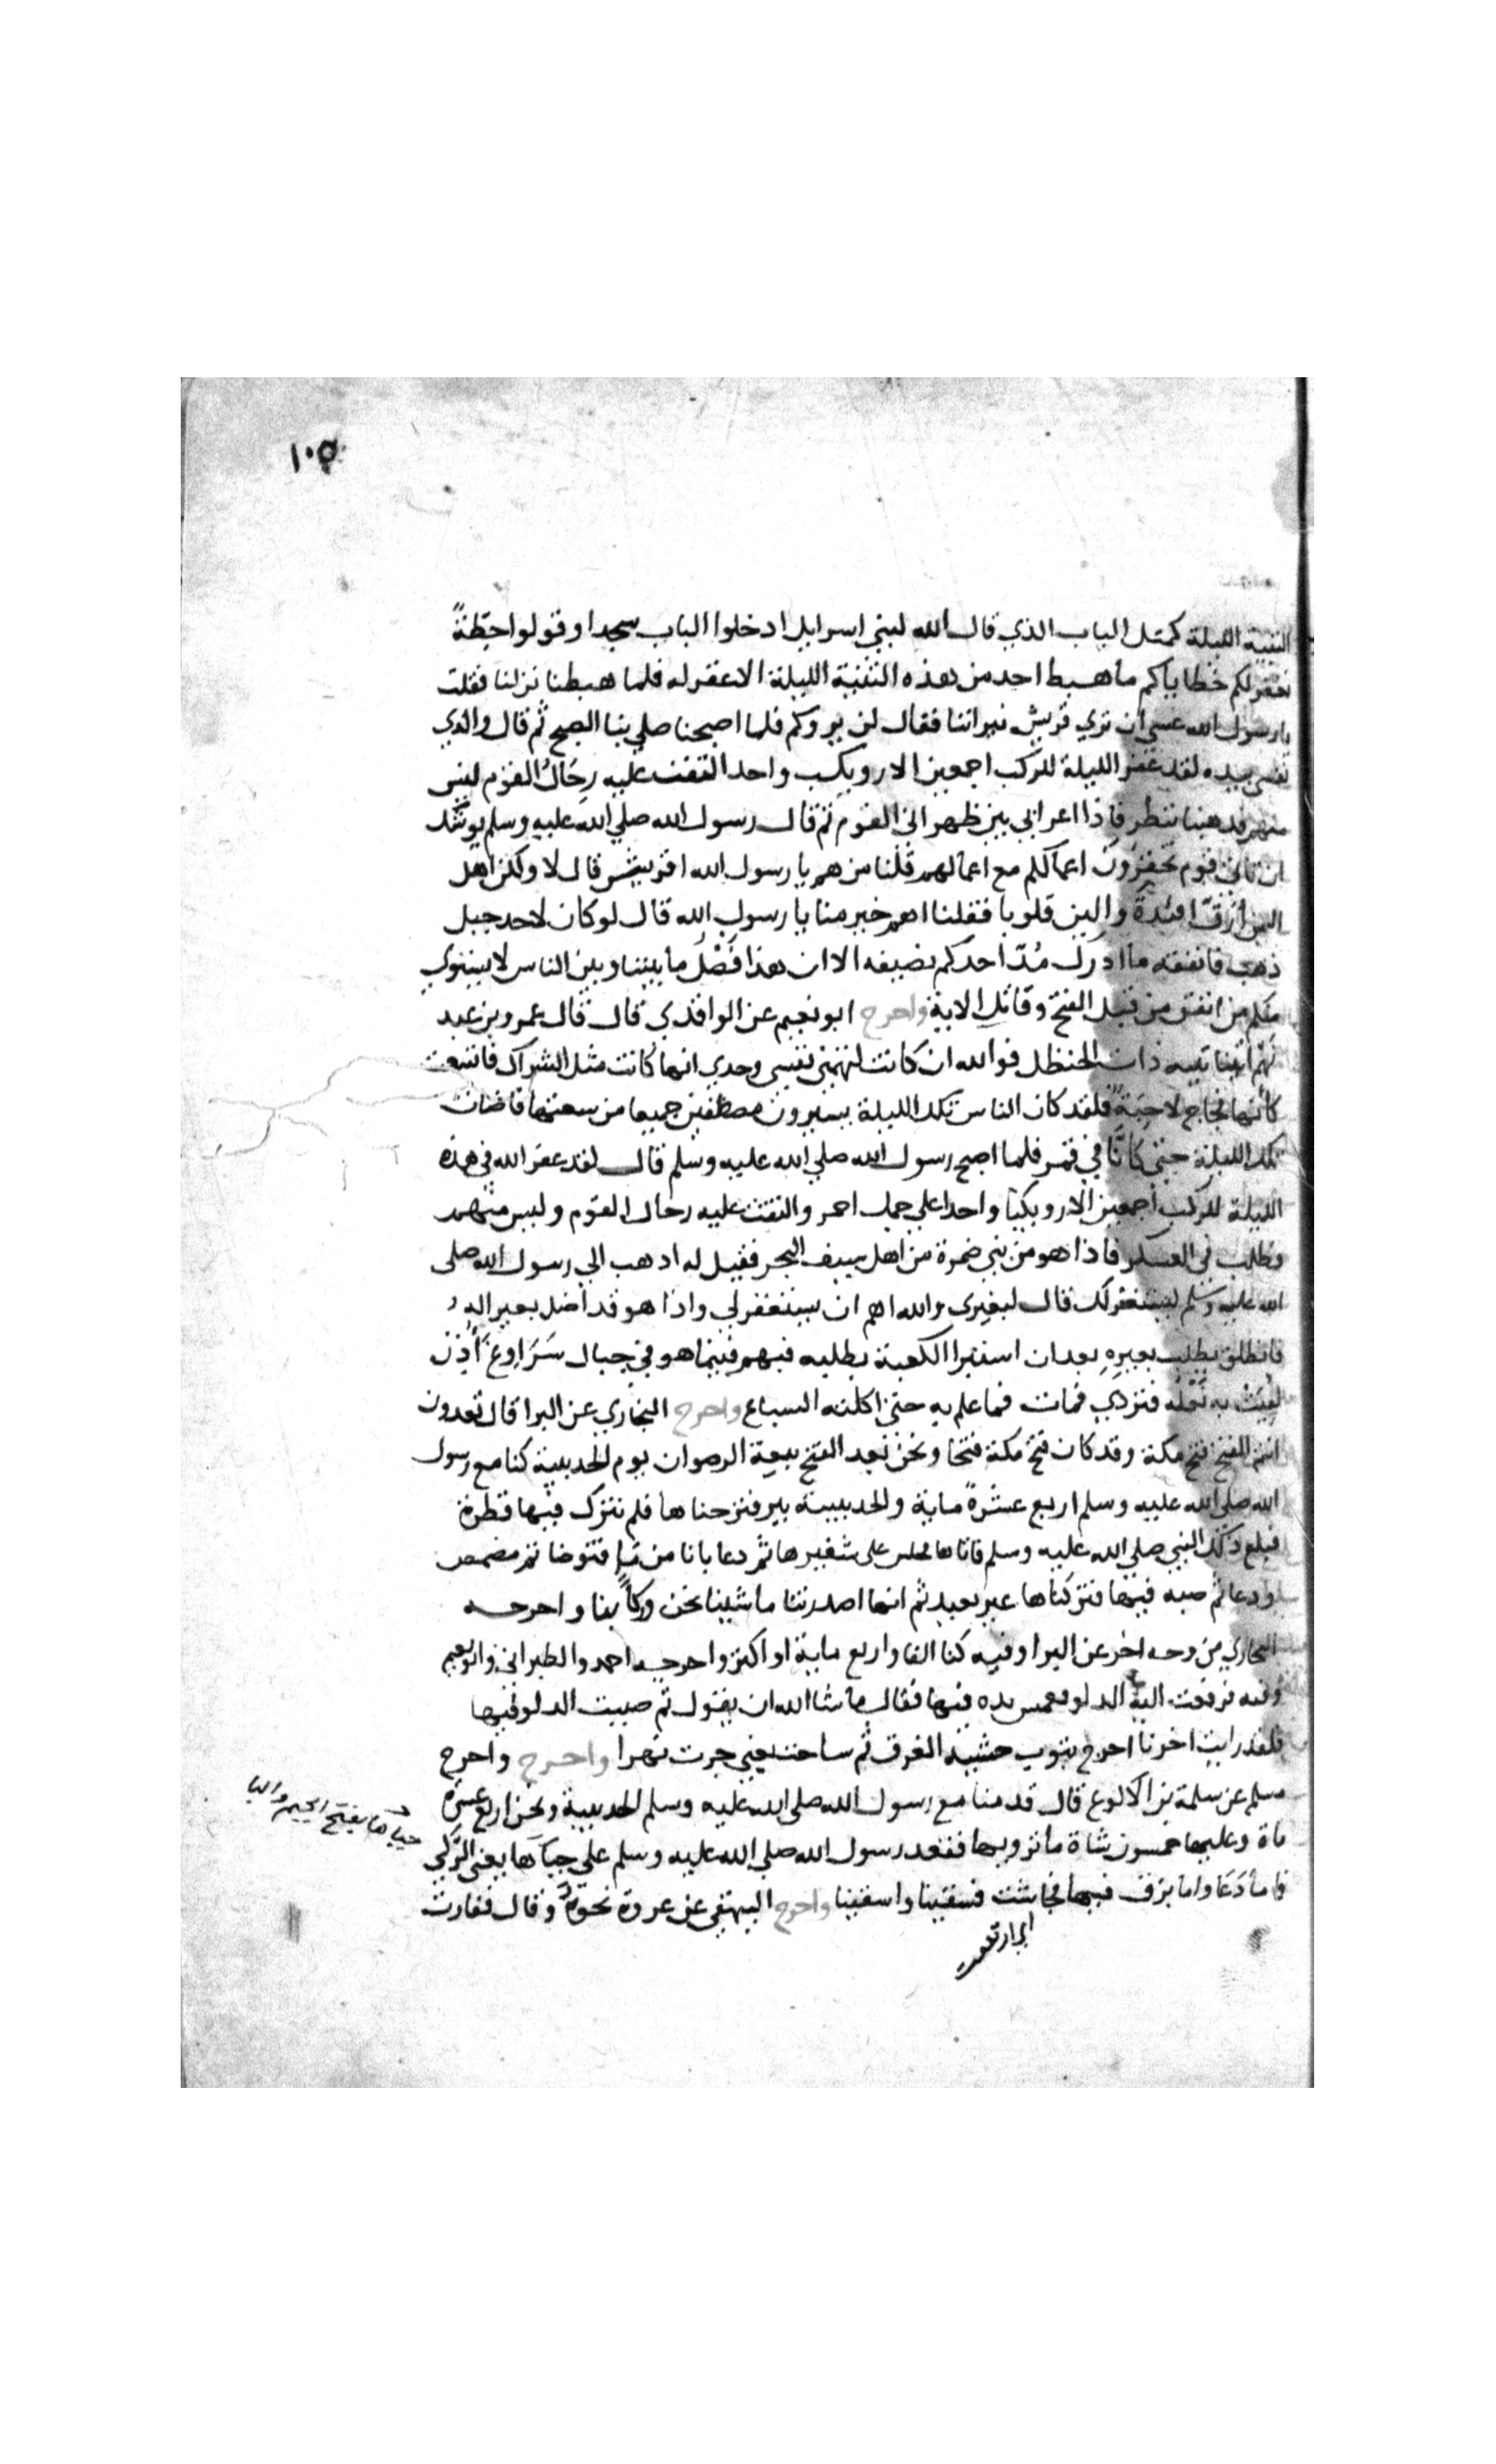 ١٠٥
الثنية الليلة كمثل الباب الذي قال الله لبني اسرايل ادخلوا الباب سجدا وقولوا حطةً
نغفر لكم خطاياكم ما هبط احد من هذه الثنية الليلة الا غفر له فلما هبطنا نزلنا فقلت
يا رسول الله عسى ان تري قريش نيراننا فقال لن يروكم فلما اصبحنا صلي بنا الصبح ثم قال والذي
نفسي بيده لقد غفر الليلة للركب اجمعين الا رويكب واحد التفت عليه رحالُ القوم ليس
منهم فذهبنا ننظر فاذا اعرابي بين ظهراني القوم ثم قال رسول الله صلي الله عليه وسلم يوشك
ان ياتي قوم تحقرون اعمالكم مع اعمالهم قلنا من هم يا رسول الله اقريش قال لا ولكن اهل
اليمن ارق افئدة والين قلوبا فقلنا اهم خير منا يا رسول الله قال لو كان لاحد جبل
ذهب فانفقه ما ادرك مُدّ احدكم نصيفه الا ان هذا فَصْلُ ما بيننا وبين الناس لا يستوي
منكم من انفق من قبل الفتح وقاتل الاية واخرج ابو نعيم عن الواقدي قال قال عمرو بن عبد
نهم اتينا ثنيه ذات الحنظل فوالله ان كانت لتهمني نفسي وحدي انها كانت مثل الشراك فاتسعت
كانها فجاج لاحبة فلقد كان الناس تلك الليلة يسيرون مصطفين جميعا من سعتها فاضات
تلك الليلة حتى كانّا في قمر فلما اصبح رسول الله صلي الله عليه وسلم قال لقد غفر الله في هذه
الليلة للركب اجمعين الا رويكبا واحدا علي جمل احمر والتفت عليه رحال القوم وليس منهم
فطلب في العسكر فاذا هو من بني ضمرة من اهل سيف البحر فقيل له اذهب الي رسول الله صلى
الله عليه وسلم ليستغفر لك قال لبعيري والله اهم ان يستغفر لي واذا هو قد اضل بعيرا له
فانطلق يطلب بعيرِهِ بعد ان استبرا العسكر يطلبه فيهم فبينما هو في جبال سَرَاوِع اذ
به نعله فتردي فمات فما علم به حتى اكلته السباع واخرج البخاري عن البرا قال تعدون
انتم الفتح فتح مكة وقد كان فتح مكة فتحا ونحن نعد الفتح بيعة الرضوان يوم الحديبية كنا مع رسول
الله صلى الله عليه وسلم اربع عشرة ماية والحديبية بير فنزحناها فلم نترك فيها قطرة
فبلغ ذلك النبي صلى الله عليه وسلم فاتاها فجلس على شفيرها ثم دعا بانا من ما فتوضا ثم مضمض
ودعا ثم صبه فيها فتركناها غير بعيد ثم انها اصدرتنا ما شينا نحن وركابنا واخرجه
البخاري من وجه اخر عن البرا وفيه كنا الفا واربع ماية او اكثر واخرجه احمد والطبراني وابو نعيم
وفيه فرفعت اليه الدلو فغمس يده فيها فقال ما شا الله ان يقول ثم صببت الدلو فيها
فلقد رايت اخرنا اخرج بثوب خشية الغرق ثم ساحت يعني جرت نهرا واخرج واخرج
مسلم عن سلمة بن الاكوع قال قدمنا مع رسول الله صلى الله عليه وسلم الحديبية ونحن اربع عشرة
ماة وعليها خمسون شاة ما ترويها فقعد رسول الله صلي الله عليه وسلم على جباها يعني الرَّكي
فاما دَعَا واما بزق فيها فجاشت فسقينا واستقينا واخرج البيهقي عن عروة نحوه وقال ففارت
جباها بفتح الجيم والبا
اي ارتفعت